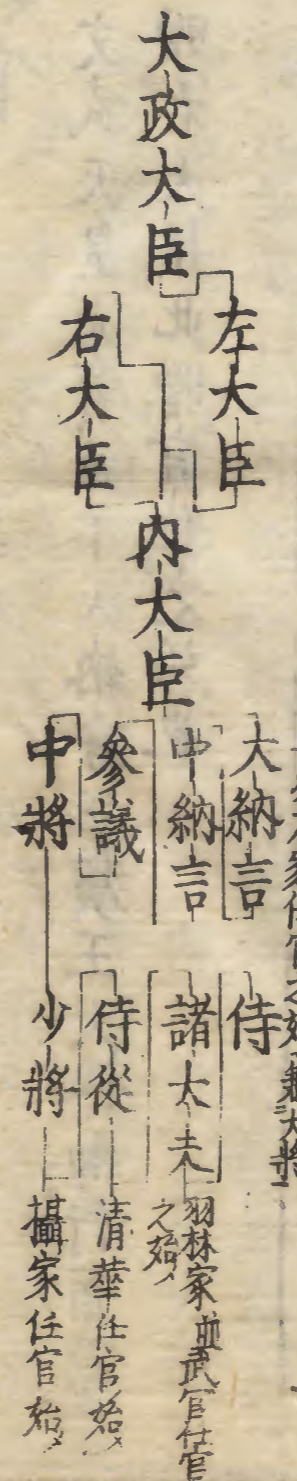 大政大臣
左大臣
右大臣
内大臣
大納言
中納言
參議
中將
侍
諸太夫
侍從
少將
家任官之始兼大將
羽林家並武官任官
之始
清華任官始
攝家任官始